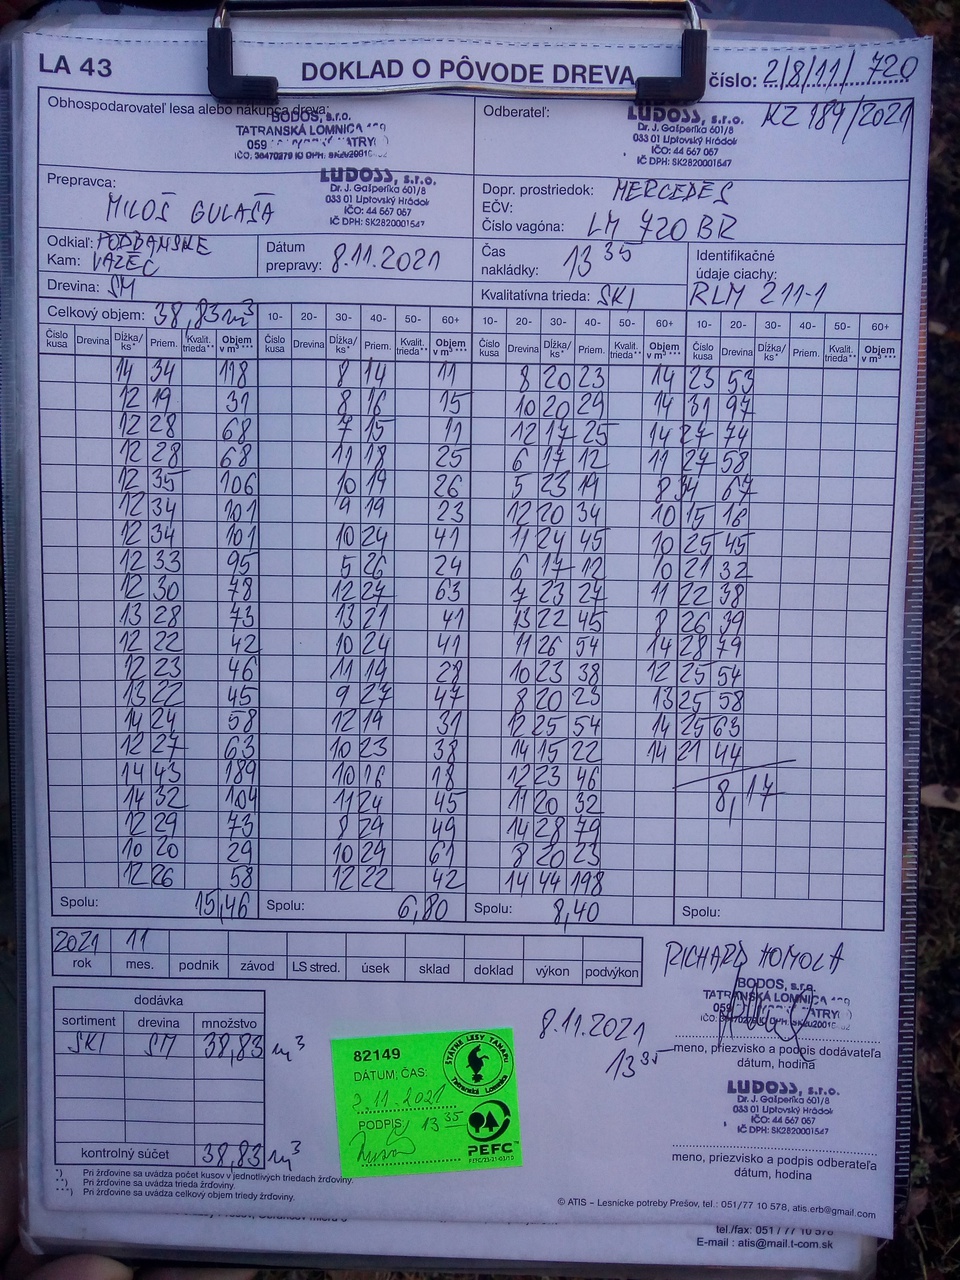 LA 43
DOKLAD O PÔVODE DREVA
číslo: 2/8/11/ 720
KZ 189/2021
Obhospodarovateľ lesa alebo nákupca dreva:
BODOS, s.r.o.
TATRANSKÁ LOMNICA
059
Odberateľ:
LUDOSS, s.r.o.
Dr. J. Gašperíka 601/8
033 01 Liptovský Hrádok
IČO: 44 567 067
IČ DPH: SK2820001547
Prepravca:
MILOŠ GULAŠA
LUDOSS, s.r.o.
Dr. J. Gašperíka 601/8
033 01 Liptovský Hrádok
IČO: 44 567 067
IČ DPH: SK2820001547
Dopr. prostriedok: MERCEDES
EČV:
Číslo vagóna: LM 720 BR
Odkiaľ: PODBANSKE
Kam: VAZEC
Dátum
prepravy: 8.11.2021
Čas
nakládky: 13 35
Identifikačné
údaje ciachy:
RLM 211-1
Drevina: SM
Kvalitatívna trieda: SKI
Celkový objem: 38,83 m3 10- 20- 30- 40- 50- 60+ 10- 20- 30- 40- 50- 60+ 10- 20- 30- 40- 50- 60+
Číslo kusa Drevina Dĺžka/ ks* Priem. Kvalit. trieda** Objem v m³ *** Číslo kusa Drevina Dĺžka/ ks* Priem. Kvalit. trieda** Objem v m³ *** Číslo kusa Drevina Dĺžka/ ks* Priem. Kvalit. trieda** Objem v m³ *** Číslo kusa Drevina Dĺžka/ ks* Priem. Kvalit. trieda** Objem v m³ ***
14 34 118 8 14 11 8 20 23 14 23 53
12 19 31 8 16 15 10 20 29 14 31 97
12 28 68 7 15 11 12 17 25 14 27 74
12 28 68 11 18 25 6 17 12 11 27 58
12 35 106 10 19 26 5 23 19 8 34 67
12 34 101 9 19 23 12 20 34 10 15 16
12 34 101 10 24 41 11 24 45 10 25 45
12 33 95 5 26 24 6 17 12 10 21 32
12 30 78 12 27 63 7 23 27 11 22 38
13 28 73 13 21 41 13 22 45 8 26 39
12 22 42 10 24 41 11 26 54 14 28 79
12 23 46 11 19 28 10 23 38 12 25 54
13 22 45 9 27 47 8 20 23 13 25 58
14 24 58 12 19 31 12 25 54 14 25 63
12 27 63 10 23 38 14 15 22 14 21 44
14 43 189 10 16 18 12 23 46
14 32 104 11 24 45 11 20 32 8,17
12 29 73 8 29 49 14 28 79
10 20 29 10 29 61 8 20 23
12 26 58 12 22 42 14 44 198
Spolu: 15,46 Spolu: 6,80 Spolu: 8,40 Spolu:
2021 11
rok mes. podnik závod LS stred. úsek sklad doklad výkon podvýkon
RICHARD HOMOLA
BODOS, s.r.o.
TATRANSKÁ LOMNICA
dodávka
sortiment drevina množstvo
SKI SM 38,83 m3
kontrolný súčet 38,83 m3
8.11.2021
13 35
meno, priezvisko a podpis dodávateľa
dátum, hodina
82149
DÁTUM, ČAS:
8.11.2021
PODPIS: 13 35
ŠTÁTNE LESY TANAPU
Tatranská Lomnica
PEFC
LUDOSS, s.r.o.
Dr. J. Gašperíka 601/8
033 01 Liptovský Hrádok
IČO: 44 567 067
IČ DPH: SK2820001547
meno, priezvisko a podpis odberateľa
dátum, hodina
*) Pri žrďovine sa uvádza počet kusov v jednotlivých triedach žrďoviny.
**) Pri žrďovine sa uvádza trieda žrďoviny.
***) Pri žrďovine sa uvádza celkový objem triedy žrďoviny.
© ATIS – Lesnícke potreby Prešov, tel.: 051/77 10 578, atis.erb@gmail.com
tel./fax: 051 / 77 10 578
E-mail : atis@mail.t-com.sk